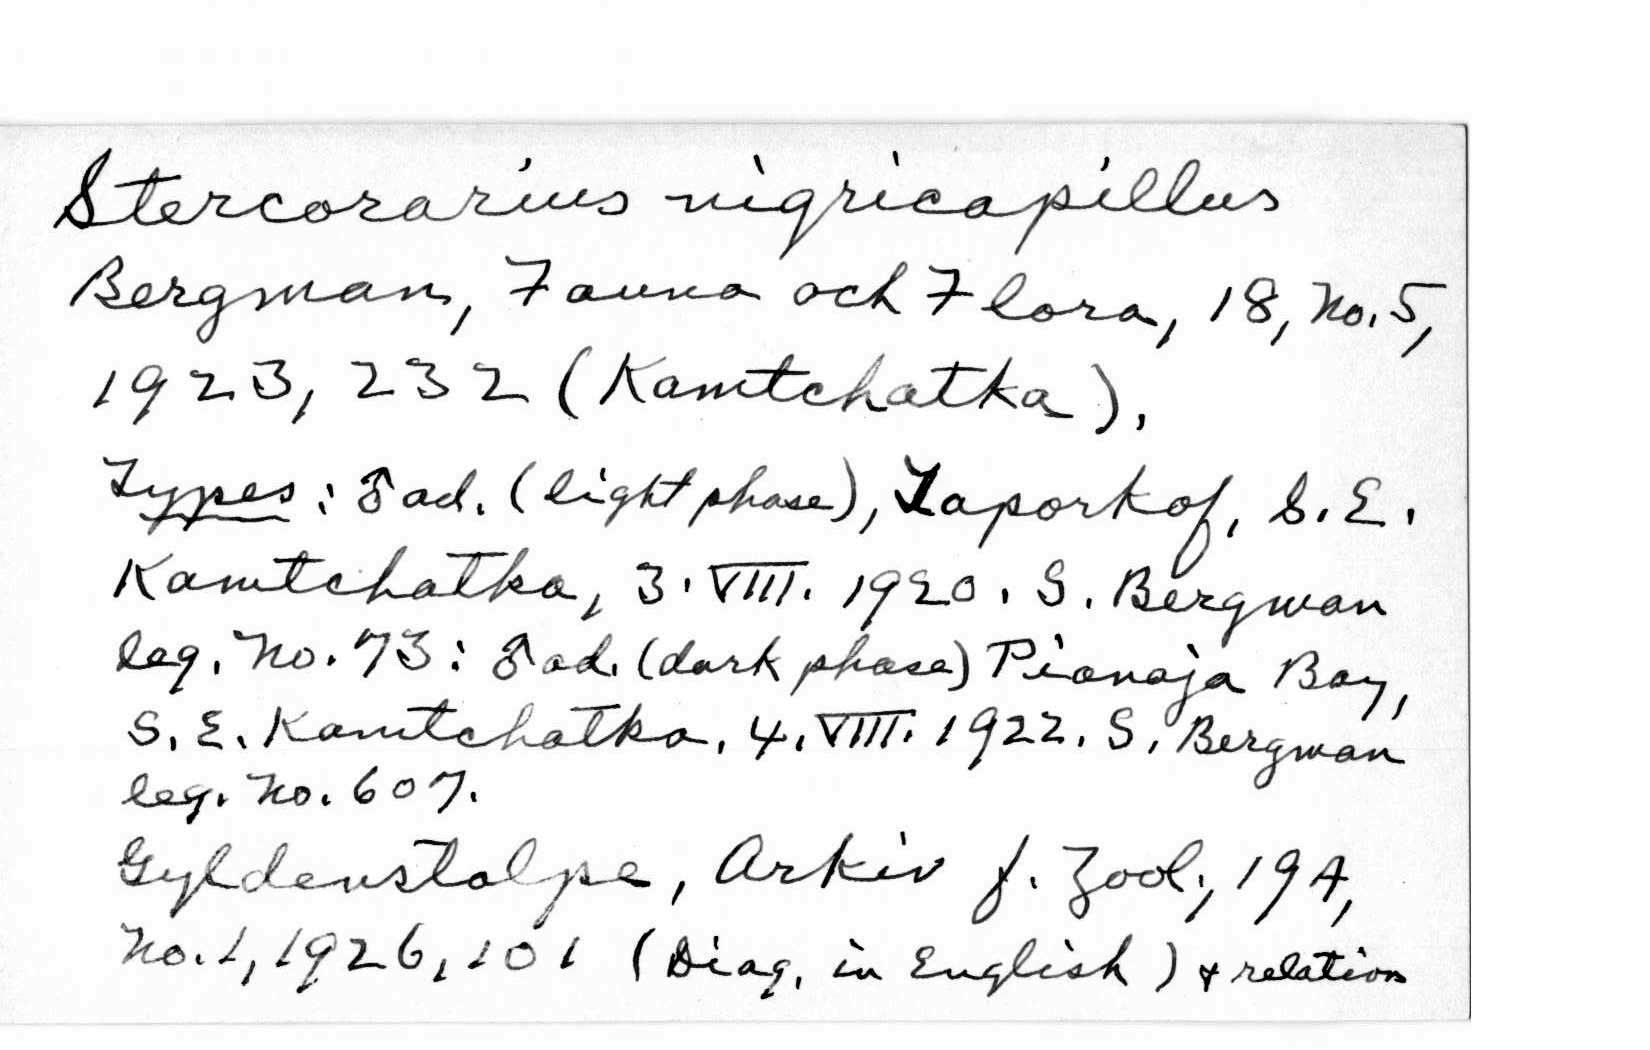 Stercorarius nigricapillus
Bergman, Fauna och Flora, 18, No. 5,
1923, 232 (Kamtchatka).
Types: ♂ ad. (light phase), Zaporkof, S. E.
Kamtchatka, 3. VIII. 1920. S. Bergman
leg. No. 73: ♂ ad. (dark phase) Pianaja Bay,
S. E. Kamtchatka. 4. VIII. 1922. S. Bergman
leg. No. 607.
Gyldenstolpe, Arkiv f. Zool., 19A,
No. 1, 1926, 101 (Diag. in English) & relation